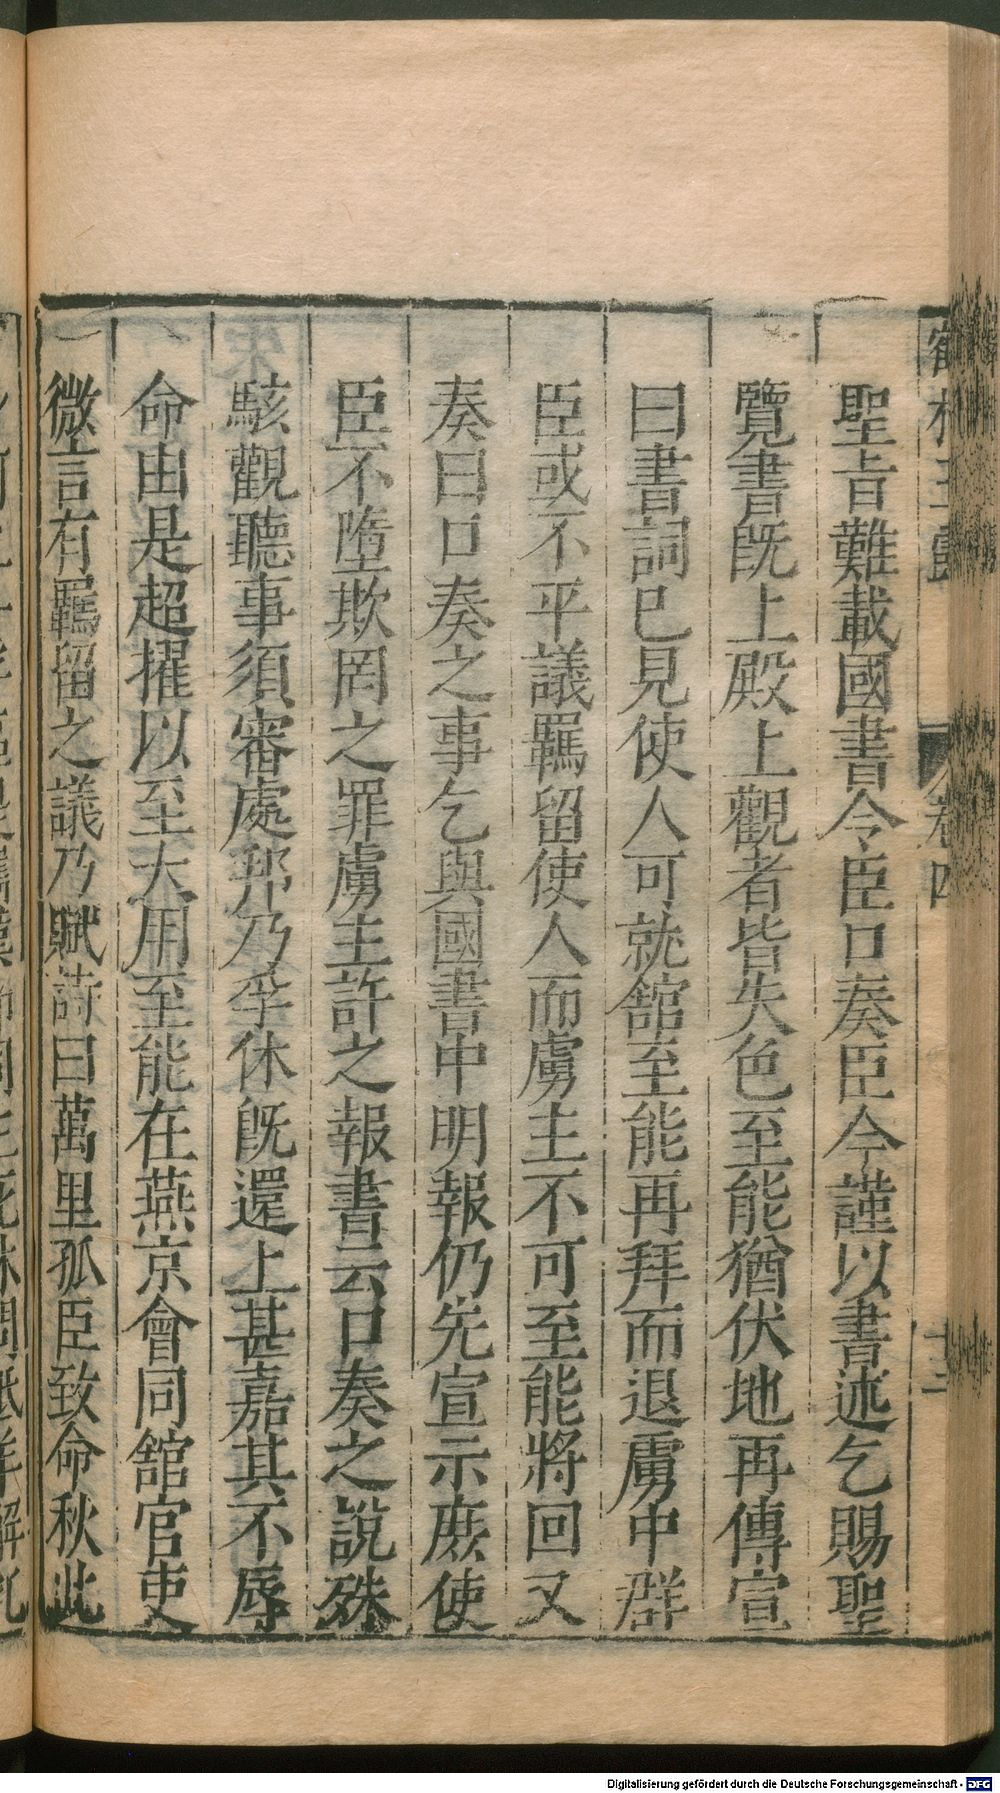 聖旨難載國書令臣口奏臣今謹以書述乞賜聖
覽書旣上殿上觀者皆失色至能猶伏地再傳宣
曰書詞已見使人可就舘至能再拜而退虜中群
臣或不平議羈留使人而虜主不可至能將回又
奏曰口奏之事乞與國書中明報仍先宣示庶使
臣不墮欺罔之罪虜主許之報書云口奏之說殊
駭觀聽事須審處邦乃孚休旣還上甚嘉其不辱
命由是超擢以至大用至能在燕京會同舘官吏
微言有羈留之議乃賦詩曰萬里孤臣致命秋此
卷四
Digitalisierung gefördert durch die Deutsche Forschungsgemeinschaft - DFG